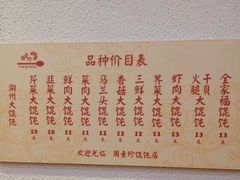 品种价目表
湖州大馄饨
芹菜大馄饨 10元
韭菜大馄饨 10元
鲜肉大馄饨 11元
菜肉大馄饨 11元
马兰头大馄饨 11元
香菇大馄饨 11元
三鲜大馄饨 11元
荠菜大馄饨 13元
虾肉大馄饨 13元
火腿干贝大馄饨 13元
全家福馄饨 15元
欢迎光临 周素珍馄饨店